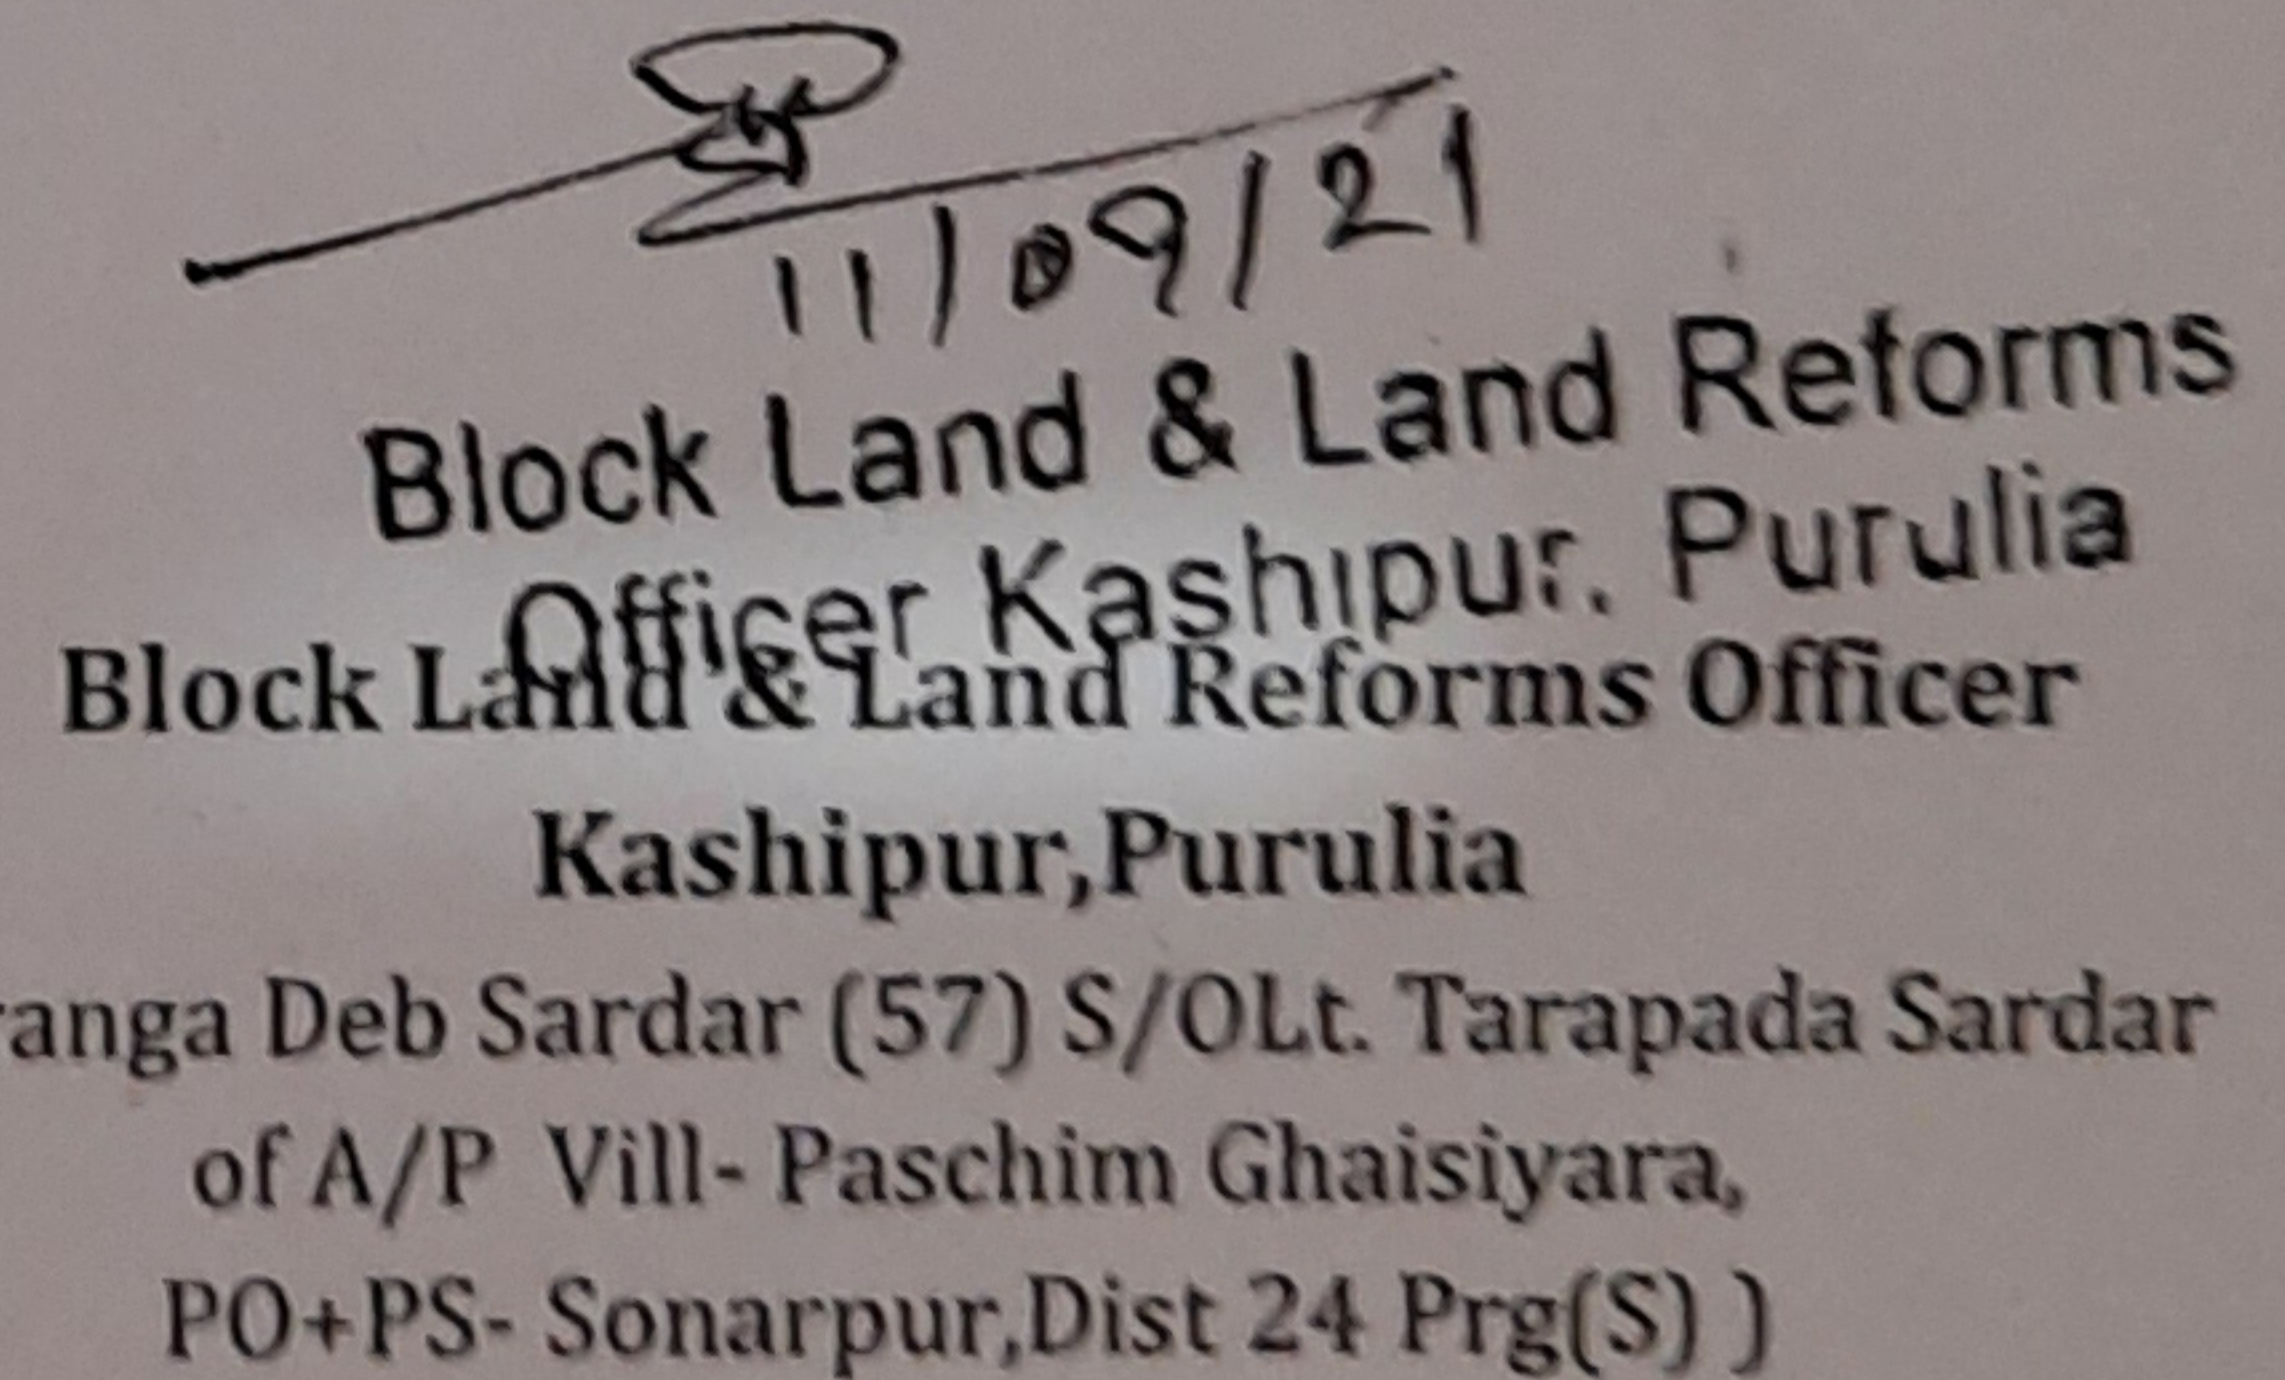 11/09/21
Block Land & Land Reforms
Officer Kashipur. Purulia
Block Land & Land Reforms Officer
Kashipur,Purulia
anga Deb Sardar (57) S/OLt. Tarapada Sardar
of A/P Vill- Paschim Ghaisiyara,
PO+PS- Sonarpur,Dist 24 Prg(S) )